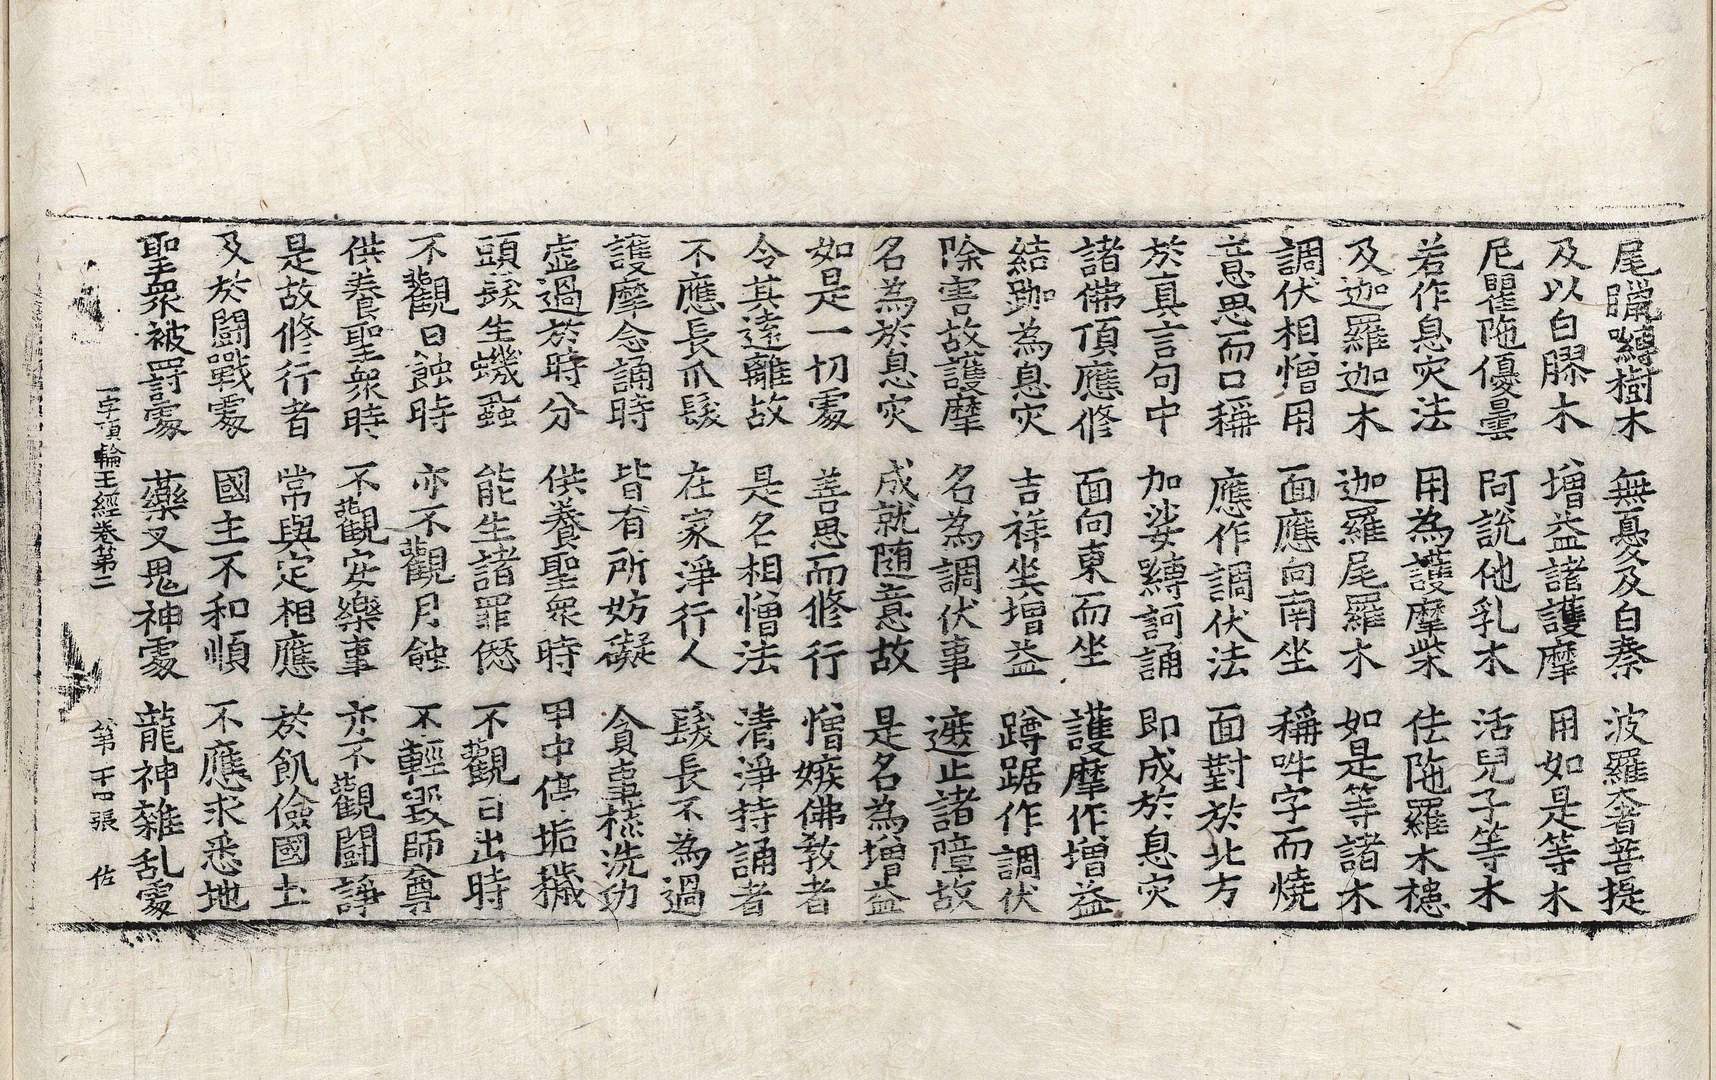 尾臘嚩樹木 無憂及白㮈 波羅奢菩提
及以白膠木 增益諸護摩 用如是等木
尼瞿陁優曇 阿說他乳木 活兒子等木
若作息灾法 用為護摩柴 佉陁羅木櫶
及迦羅迦木 迦羅尾羅木 如是等諸木
調伏相憎用 面應向南坐 稱吽字而燒
意思而口稱 應作調伏法 面對於北方
於真言句中 加娑嚩訶誦 即成於息灾
諸佛頂應修 面向東而坐 護摩作增益
結跏為息灾 吉祥坐增益 蹲踞作調伏
除害故護摩 名為調伏事 遮止諸障故
名為於息灾 成就随意故 是名為增益
如是一切處 善思而修行 憎嫉佛教者
令其遠離故 是名相憎法 清淨持誦者
不應長爪髮 在家淨行人 髮長不為過
護摩念誦時 皆有所妨礙 貪事樔洗功
虛過於時分 供養聖衆時 甲中停垢穢
頭髮生蟣蝨 能生諸罪愆 不觀日出時
不觀日蝕時 亦不觀月蝕 不輕毀師尊
供養聖衆時 不觀安樂事 亦不觀鬪諍
是故修行者 常與定相應 於飢儉國土
及於鬪戰處 國主不和順 不應求悉地
聖衆被罸處 藥叉鬼神處 龍神雜乱處
一字頂輪王經卷第二 第十四張 佐